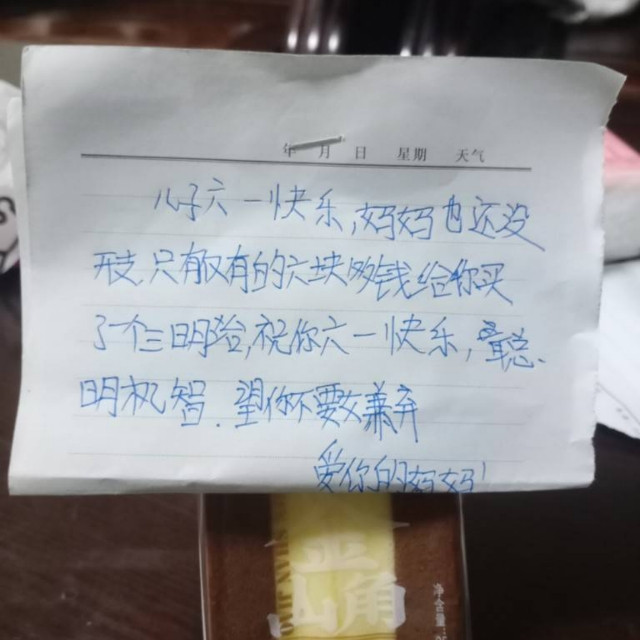 年 月 日 星期 天气
儿子六一快乐,妈妈也还没
开支,只有仅有的六块多钱给你买
了个三明治,祝你六一快乐,
明机智.望你不要嫌弃
爱你的妈妈!
金
三角
净含量